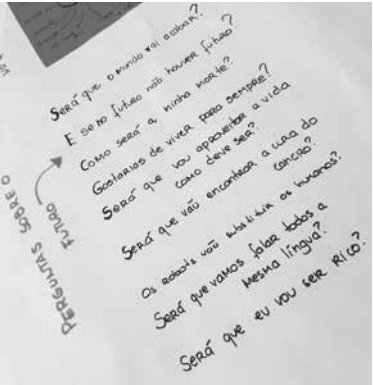 Será que o mundo vai acabar?
E se no futuro não houver futuro?
Como será a minha morte?
Gostarias de viver para sempre?
Será que vou aproveitar a vida
como deve ser?
Será que vão encontrar a cura do
cancro?
Os robots vão substituir os humanos?
Será que vamos falar todos a
mesma língua?
Será que eu vou ser rico?
PERGUNTAS SOBRE O
FUTURO